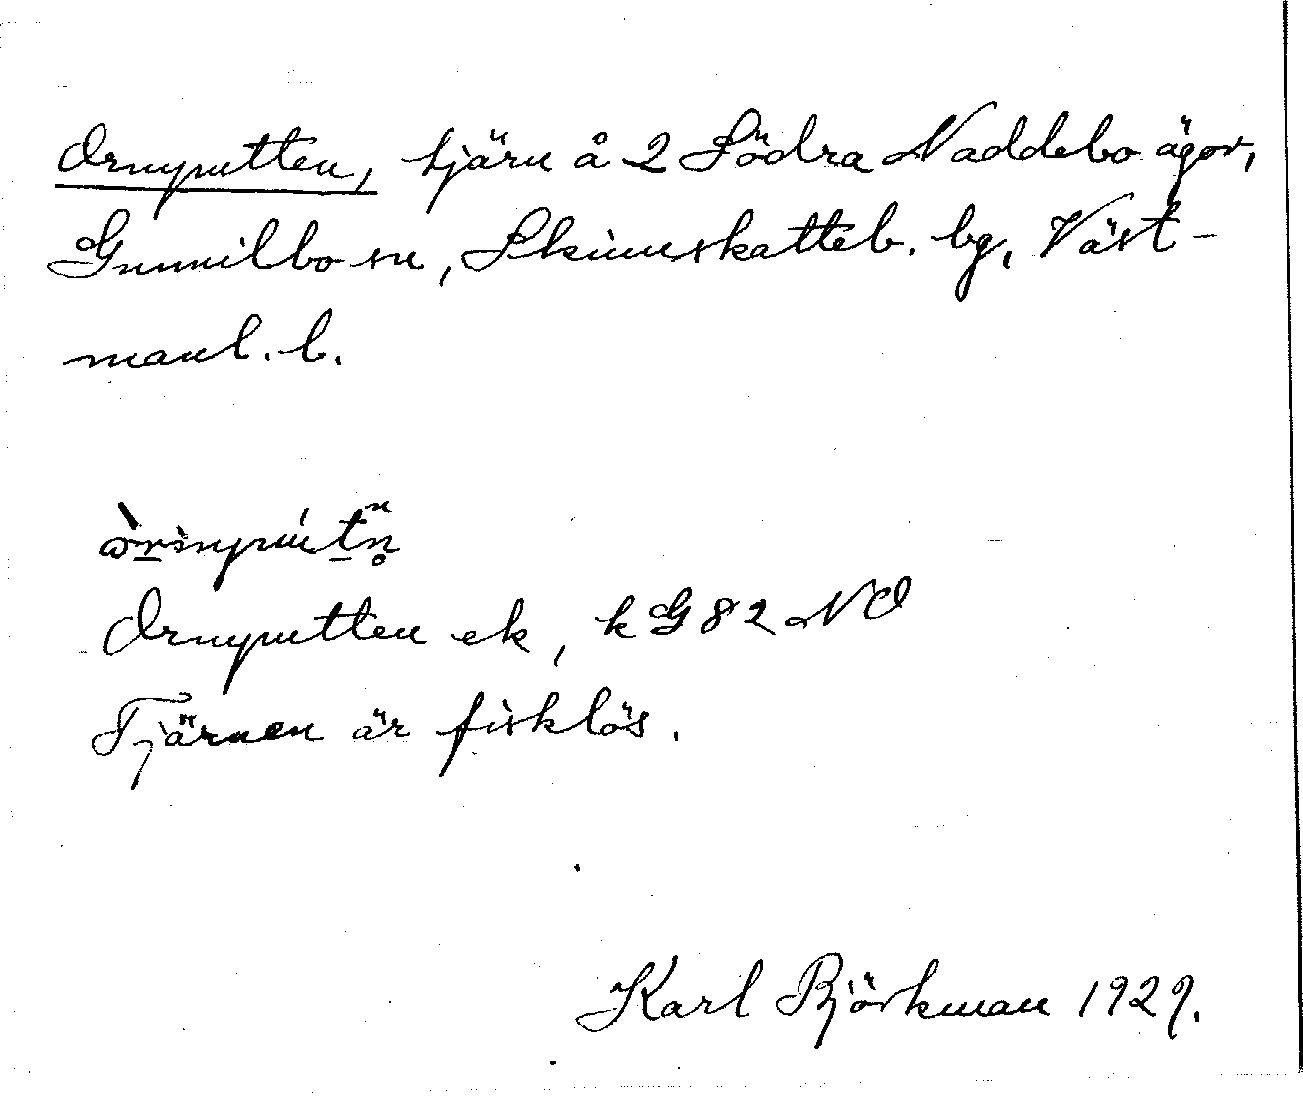 Ornputten, tjärn å 2 Södra Naddebo ägor,
Gunnilbo sn, Skinnskatteb. bg, Väst-
manl. l.
Ornputten ek, k G 82 NO
Tjärnen är fisklös.
Karl Björkman 1929.